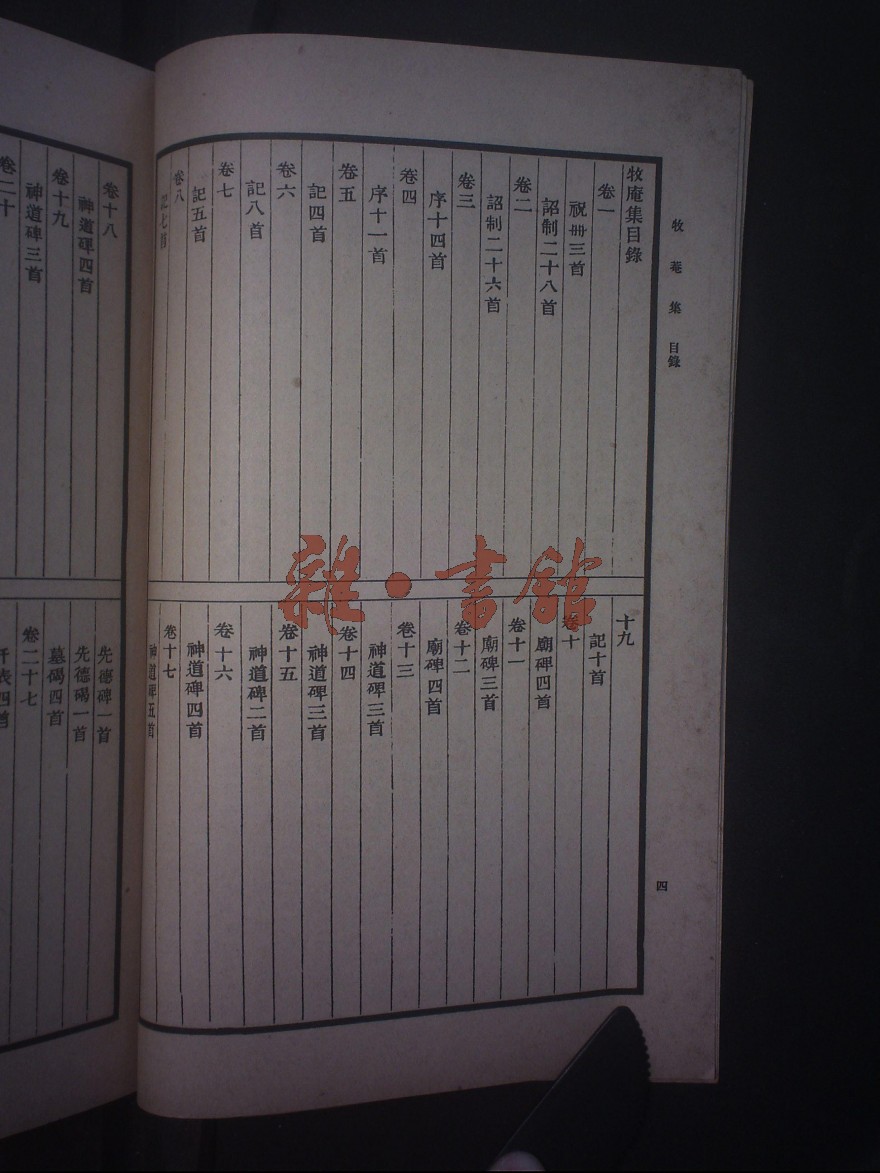 牧菴集 目錄
四
牧庵集目錄
卷一
祝冊三首
詔制二十八首
卷二
詔制二十六首
卷三
序十四首
卷四
序十一首
卷五
記四首
卷六
記八首
卷七
記五首
卷八
記七首
十九
記十首
卷十
廟碑四首
卷十一
廟碑三首
卷十二
廟碑四首
卷十三
神道碑三首
卷十四
神道碑三首
卷十五
神道碑二首
卷十六
神道碑四首
卷十七
神道碑五首
卷十八
神道碑四首
卷十九
神道碑三首
卷二十
先德碑一首
先德碣一首
墓碣四首
卷二十七
阡表四首
雜·書館